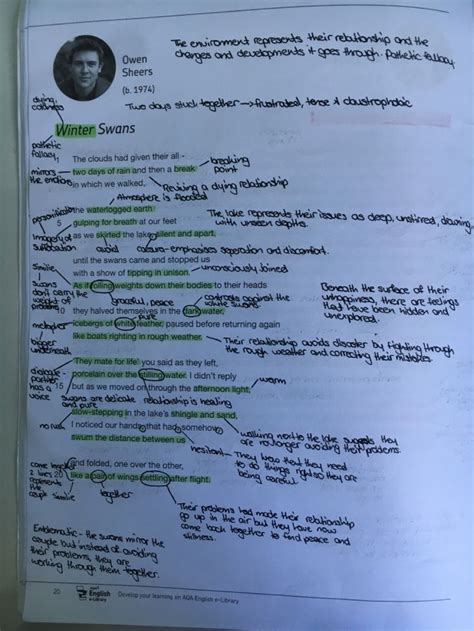 Owen
Sheers
(b. 1974)
The environment represents their relationship and the
changes and developments it goes through. Pathetic fallacy.
Two days stuck together → frustrated, tense & claustrophobic
dying,
coldness
Winter Swans
pathetic
fallacy
The clouds had given their all -
breaking
point
mirrors
the emotions
two days of rain and then a break
in which we walked,
Reviving a dying relationship
Atmosphere is flooded
personification
the waterlogged earth
The lake represents their issues as deep, unstirred, drowning
with unseen depths.
5 gulping for breath at our feet
Imagery of
suffocation
as we skirted the lake, silent and apart,
avoid
caesura - emphasises separation and discomfort.
until the swans came and stopped us
with a show of tipping in unison.
unconsciously joined
Simile
As if rolling weights down their bodies to their heads
swans
don't carry the
weight of
problems
graceful, peace
contrasts against the
white swans
Beneath the surface of their
unhappiness, there are feelings
that have been hidden and
unexplored.
10 they halved themselves in the dark water,
pure
metaphor
icebergs of white feather, paused before returning again
bigger
underneath
like boats righting in rough weather.
Their relationship avoids disaster by fighting through
the rough weather and correcting their mistakes.
'They mate for life' you said as they left,
porcelain over the stilling water. I didn't reply
partner
has a
voice
15 but as we moved on through the afternoon light,
warm
swans are delicate relationship is healing
and pure
slow-stepping in the lake's shingle and sand,
I noticed our hands, that had, somehow,
walking next to the lake suggests they
are no longer avoiding their problems.
swum the distance between us
hesitant
They know that they need
to do things right so they are
being careful.
come together
2 lines
represents
the
couple simile
and folded, one over the other,
20 like a pair of wings settling after flight.
together
Their problems had made their relationship
go up in the air but they have now
come back together to find peace and
stillness.
Emblematic - the swans mirror the
couple but instead of avoiding
their problems, they are
working through them together.
20
AQA
English
e-Library
Develop your learning on AQA English e-Library